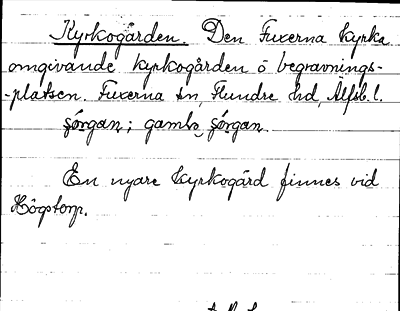 Kyrkogården. Den Fuxerna kyrka
omgivande kyrkogården o begravnings-
-platsen. Fuxerna sn, Flundre hd, Älfsb. l.
şǿrgan; gamlo şǿrgan.
En nyare kyrkogård finnes vid
Högstorp.